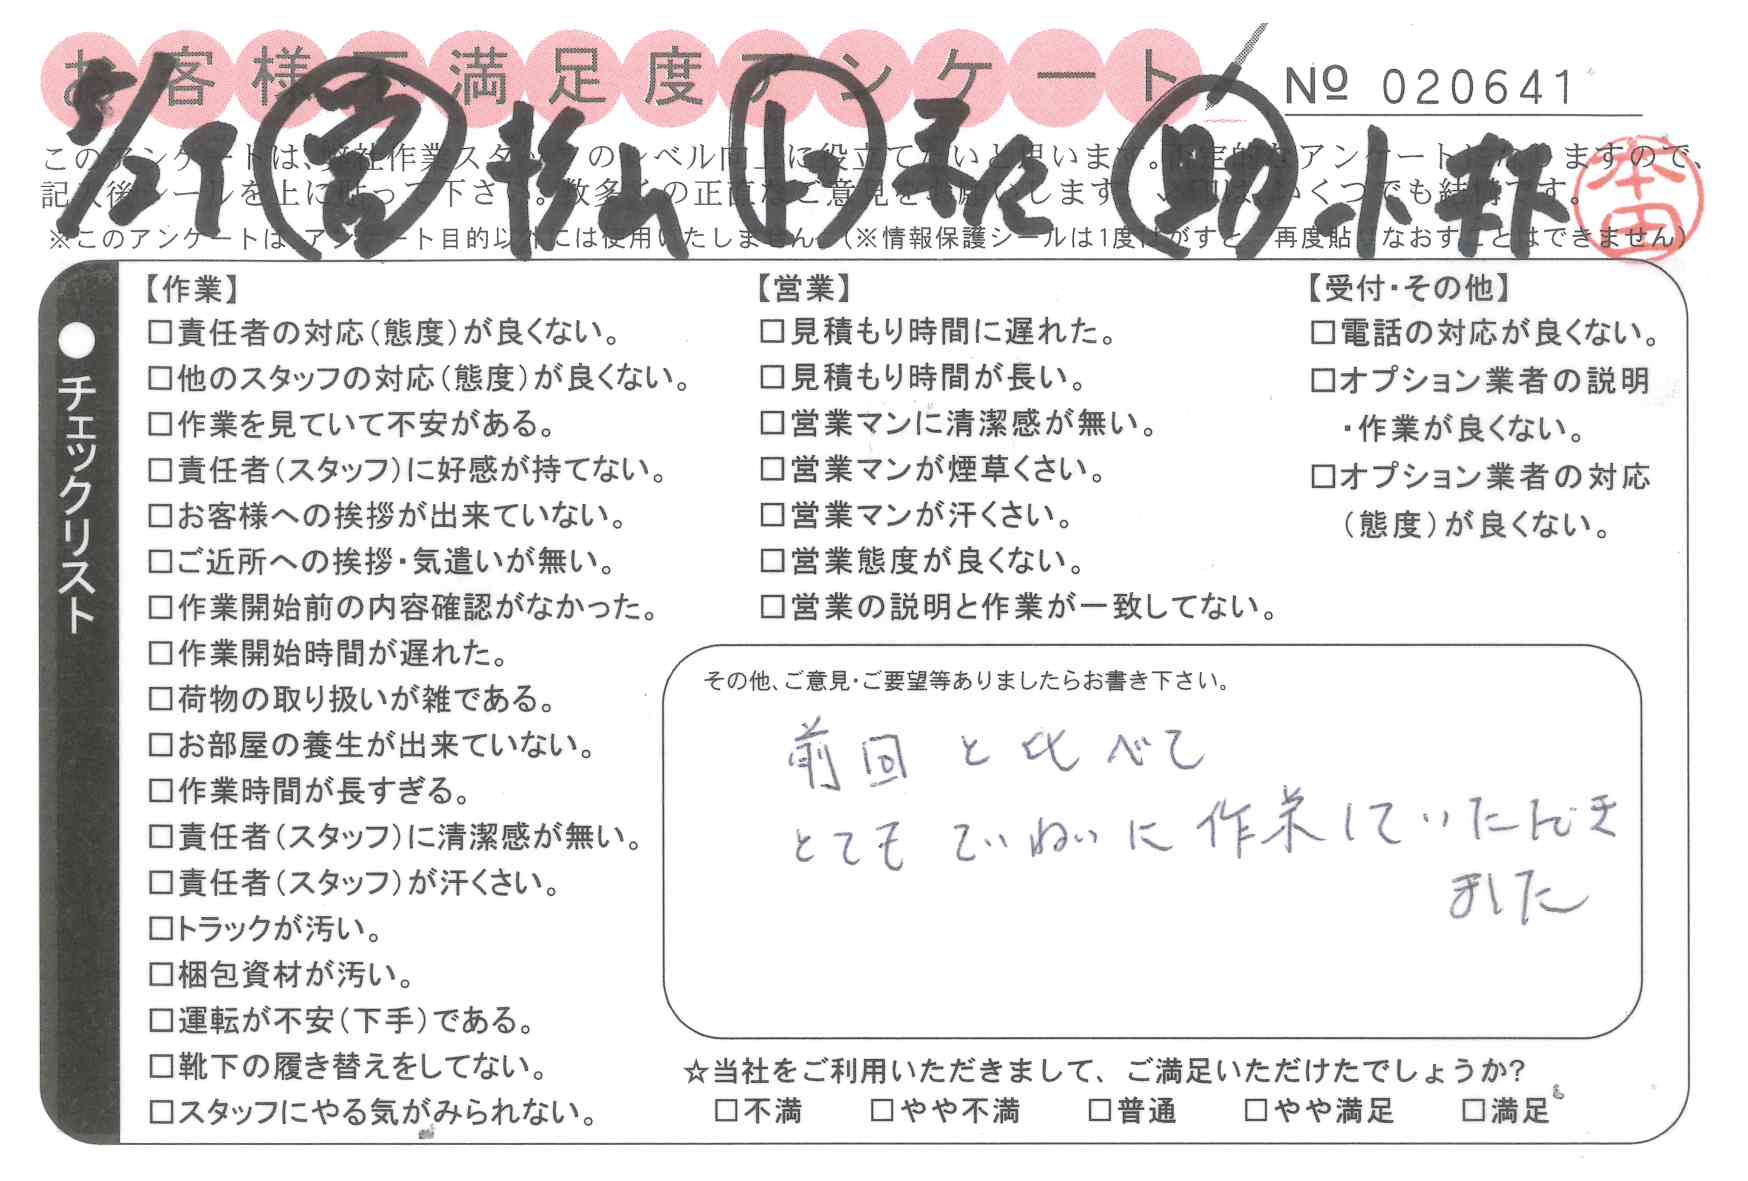 お客様不満足度アンケート
№ 020641
5/27 営 杉山 ト 助 小
本田
このアンケートは、弊社作業スタッフのレベル向上に役立てたいと思います。
記入後シールを上に貼って下さい。数多くの正直なご意見をお願いします。
※このアンケートは、アンケート目的以外には使用いたしません。(※情報保護シールは1度はがすと、再度貼りなおすことはできません)
●チェックリスト
【作業】
□責任者の対応(態度)が良くない。
□他のスタッフの対応(態度)が良くない。
□作業を見ていて不安がある。
□責任者(スタッフ)に好感が持てない。
□お客様への挨拶が出来ていない。
□ご近所への挨拶・気遣いが無い。
□作業開始前の内容確認がなかった。
□作業開始時間が遅れた。
□荷物の取り扱いが雑である。
□お部屋の養生が出来ていない。
□作業時間が長すぎる。
□責任者(スタッフ)に清潔感が無い。
□責任者(スタッフ)が汗くさい。
□トラックが汚い。
□梱包資材が汚い。
□運転が不安(下手)である。
□靴下の履き替えをしてない。
□スタッフにやる気がみられない。
【営業】
□見積もり時間に遅れた。
□見積もり時間が長い。
□営業マンに清潔感が無い。
□営業マンが煙草くさい。
□営業マンが汗くさい。
□営業態度が良くない。
□営業の説明と作業が一致してない。
【受付・その他】
□電話の対応が良くない。
□オプション業者の説明
・作業が良くない。
□オプション業者の対応
(態度)が良くない。
その他、ご意見・ご要望等ありましたらお書き下さい。
前回と比べて
とてもていねいに作業していただき
ました
☆当社をご利用いただきまして、ご満足いただけたでしょうか?
□不満 □やや不満 □普通 □やや満足 □満足